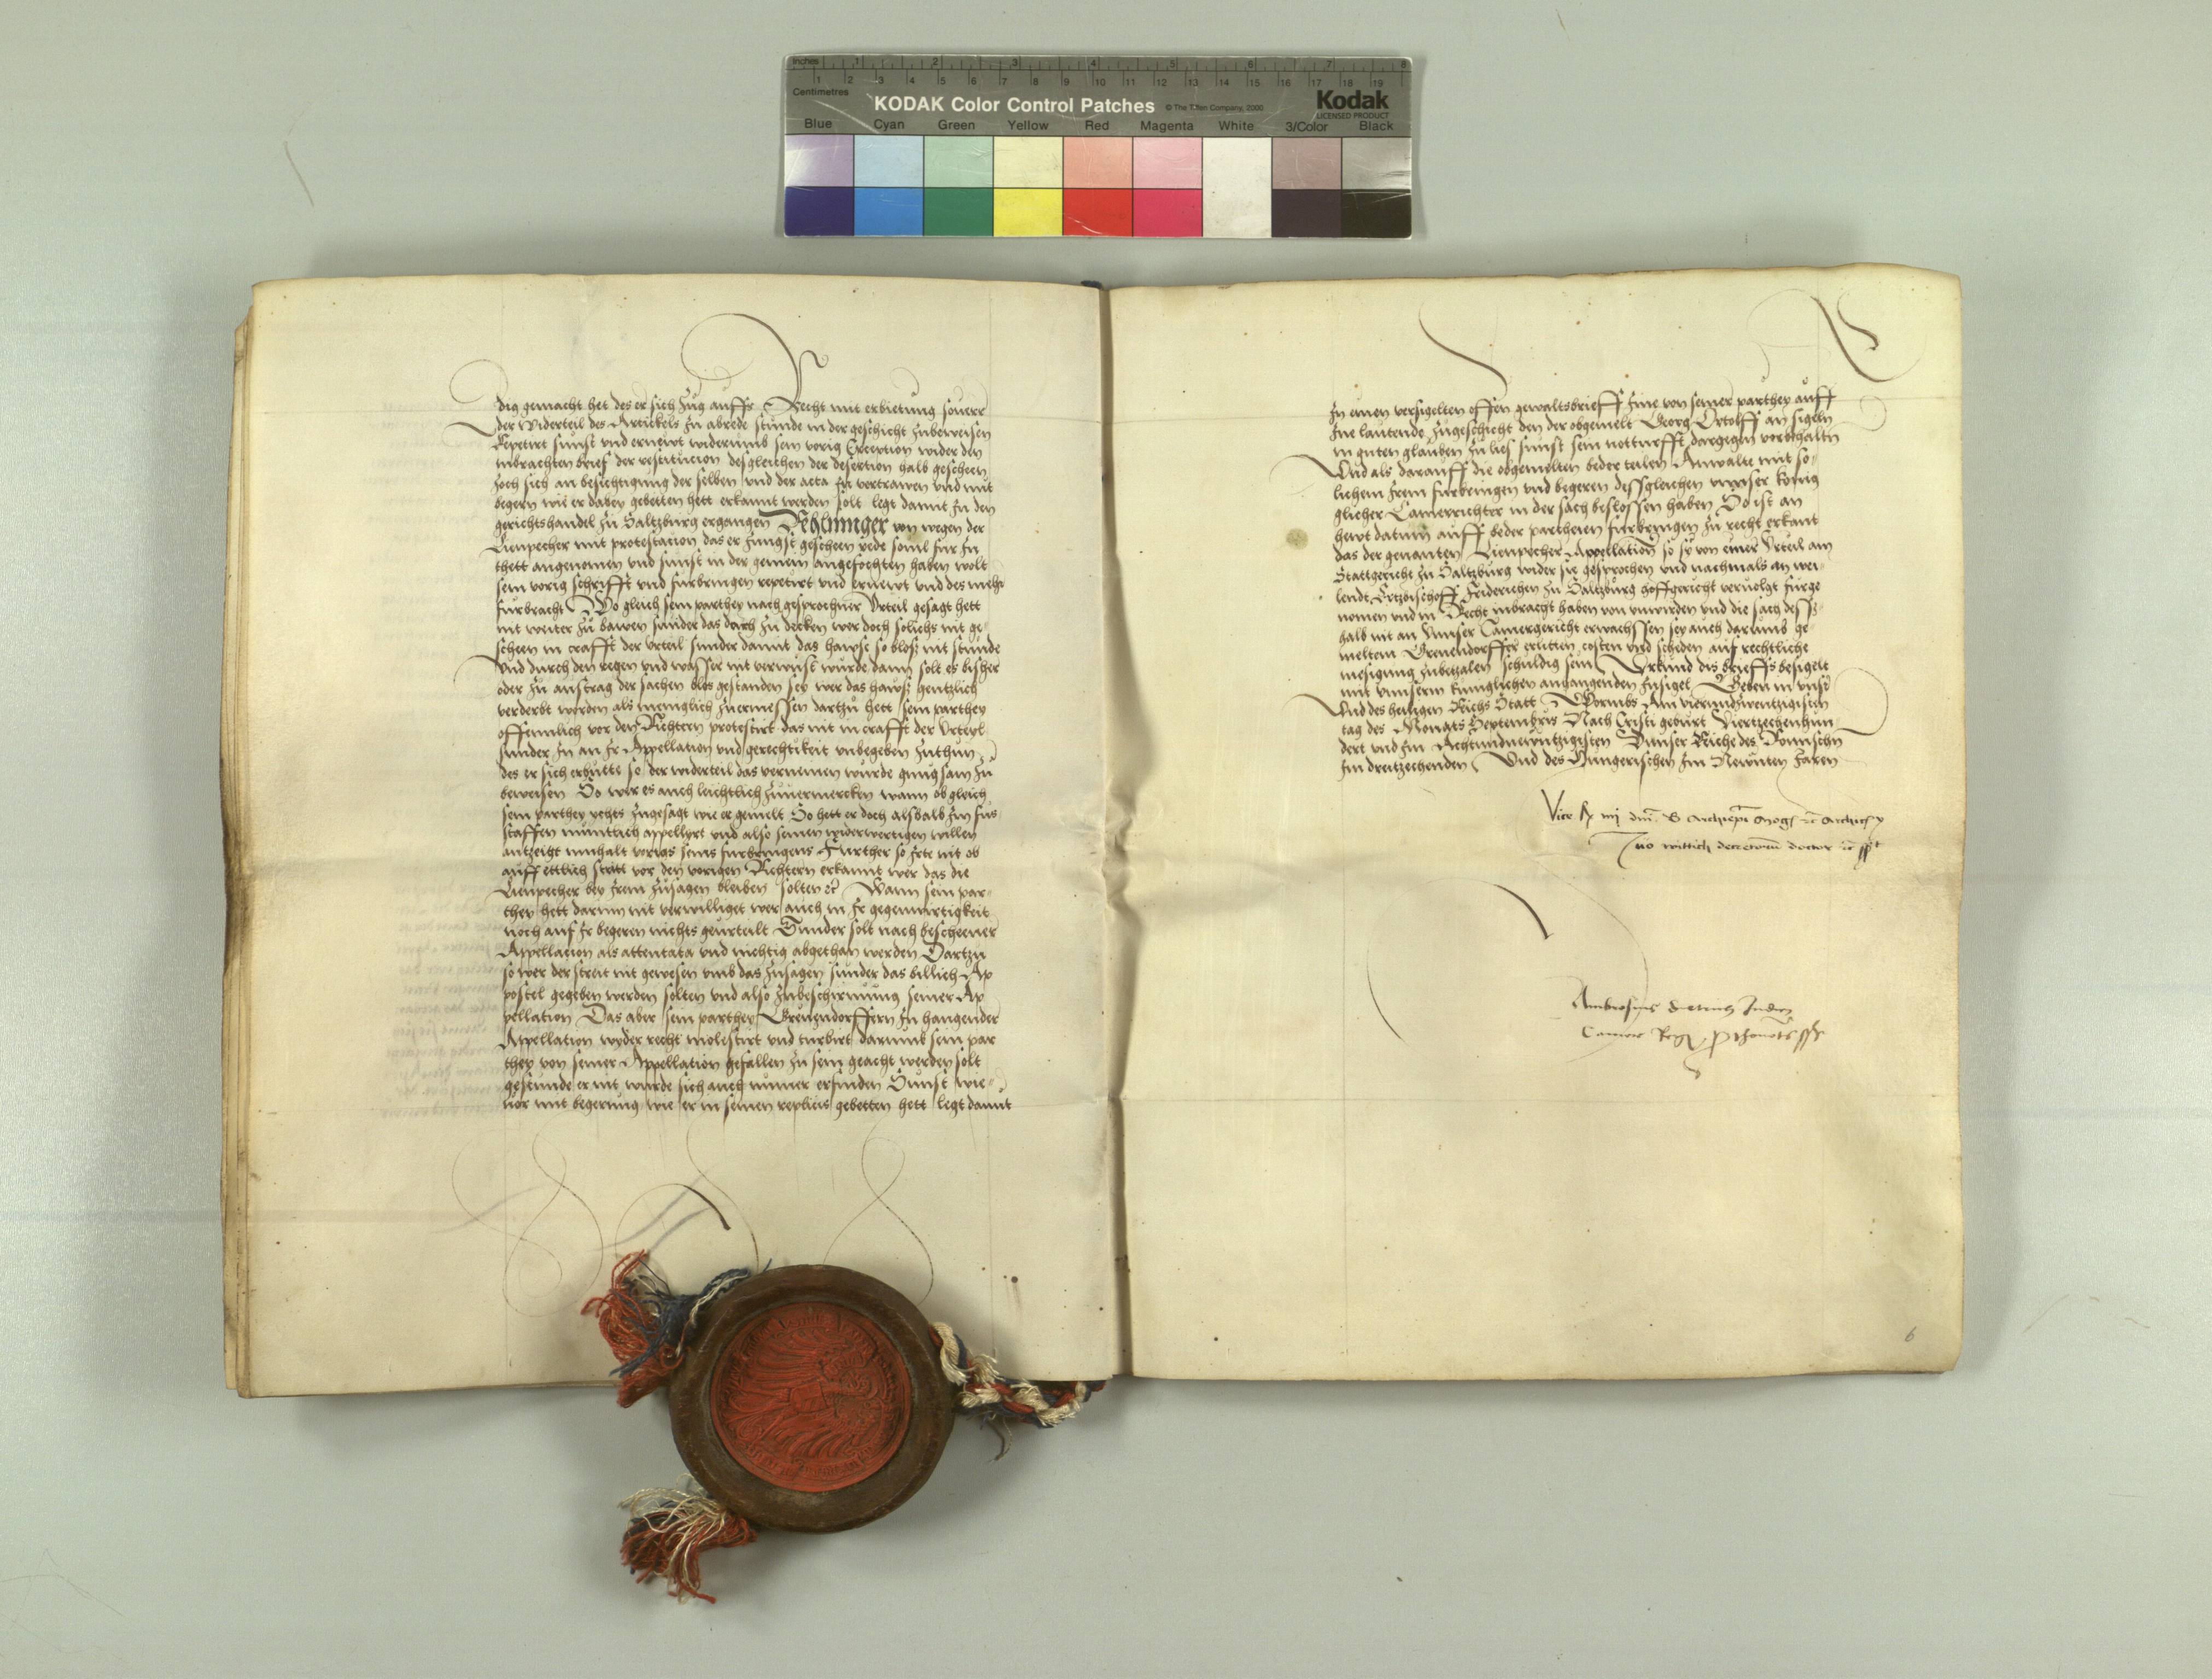 Inches 1 2 3 4 5 6 7 8
1 2 3 4 5 6 7 8 9 10 11 12 13 14 15 16 17 18 19
Centimetres
KODAK Color Control Patches © The Tiffen Company, 2000 Kodak
LICENSED PRODUCT
Blue Cyan Green Yellow Red Magenta White 3/Color Black
dig gemacht het des er sich zug auffs Recht mit erbietung souerr
der Widerteil des Artickels zu abrede stunde in der geschicht zubeweisen
Repetirt sunst vnd ernewt widerumb sein vorig Exception wider den
inbrachten brief der restitucion desgleichen der desertion halb gescheen
zoch sich an besichtigung der selben vnd der acta zu vertrawen vnd mit
begern wie er dabey gebetten hett erkannt werden solt legt damit zu den
gerichtshandel zu Saltzburg ergangen Rehlinnger von wegen der
Lienpecher mit protestacion das er jungst gescheen rede souil fur jn
thett angenomen vnd sunst in der gemein angefochten haben wolt
sein vorig schrifft vnd furbringen repetirt vnd ernewt vnd des mehr
furbracht Wo gleich sein parthey nach gesprochner Vrteil gesagt hett
nit weiter zu bawen sunder das dach zu decken wer doch solichs nit ge-
scheen in crafft der Vrteil sunder damit das hawse so blosz nit stunde
Vnd durch den regen vnd wasser nit verwust wurde dann solt es bisher
oder zu austrag der sachen blos gestanden sey wer das hawsz gentzlich
verderbt worden als meniglich zuermessen dartzu hett sein parthey
offennlich vor den Richtern protestirt das nit in crafft der Vrteyl
sunder jn an jr Appellation vnd gerechtikeit vnbegeben zuthun
des er sich erbutte so der widerteil das verneinen wurde gnugsam zu
beweisen So wer es auch leichtlich zuuermercken wann ob gleich
sein parthey ychts zugesagt wie er gemelt So hett er doch alsbald jm fus
staffen muntlich appellyrt vnd also seinen widerwertigen willen
antzeigt innhalt vorigs seins furbringens Further so jrte nit ob
auff ettlich stritt vor den vorigen Richtern erkannt wer das die
Lienpecher bey jrem zusagen bleiben solten etc Wann sein par-
they hett darinn nit verwilliget wer auch in jr gegenwirtigkeit
noch auf jr begeren nichts geurteilt Sunder solt nach bescheener
Appellacion als attentata vnd nichtig abgethan werden Dartzu
so wer der streit nit gewesen vmb das zusagen sunder das billich Ap
postel gegeben werden solten vnd also zubeschirmung seiner Ap
pellation Das aber sein parthey Grewendorffern jn hangender
Appellation wyder recht molestirt vnd turbirt darumb sein par
they von seiner Appellation gefallen zu sein geacht werden solt
gestunde er nit wurde sich auch nimer erfinden Sunst wie-
uor mit begerung wie er in seinen replicis gebetten hett legt damit
jn einen versigelten offen gewaltsbrieff jme von seiner parthey auff
jne lautende zugeschickt den der obgemelt Georg Ortolff an sigeln
in guten glauben zu lies sunst sein notturfft dargegen vorbehaltn
Vnd als darauff die obgemelten beder teilen Anwalte mit so-
lichem jrem furbringen vnd begeren dessgleichen vnnser konig
glicher Camerrichter in der sach beslossen haben So ist an
hewt datum auff beder partheien furbringen zu recht erkant
das der genanten Lienpecher Appellation so sy von einer Vrteil am
Stattgericht zu Saltzburg wider sie gesprochen vnd nachmals an wei-
lendt Ertzbischoff Friderichen zu Saltzburg hoffgericht veruolgt furge
nomen vnd in Recht inbracht haben von vnwirden vnd die sach dessz-
halb nit an Vnnser Camergericht erwachssen sey auch darumb ge-
meltem Grewendorffer erlitten costen vnd scheden auf rechtliche
mesigung zubetzalen schuldig sein Vrkund dis brieffs besigelt
mit vnnserm kunglichen anhangenden jnsigel Geben in vnser
Vnd des heiligen Reichs Statt Wormbs Am vierundzwentzigisten
tag des Monats Septembris Nach Cristi geburt Viertzechenhun-
dert vnd jm Achtundnewntzigisten Vnnser Reiche des Romischn
jm dreitzechenden Vnd des Hungerischen jm Newnten Jaren
Vice Ac nomine dni B Archiepi Mog etc Archic
Iuo wittich decretorum doctor etc sst
Ambrosius dietrich Judicij
Camere Regie prothonots sst
6